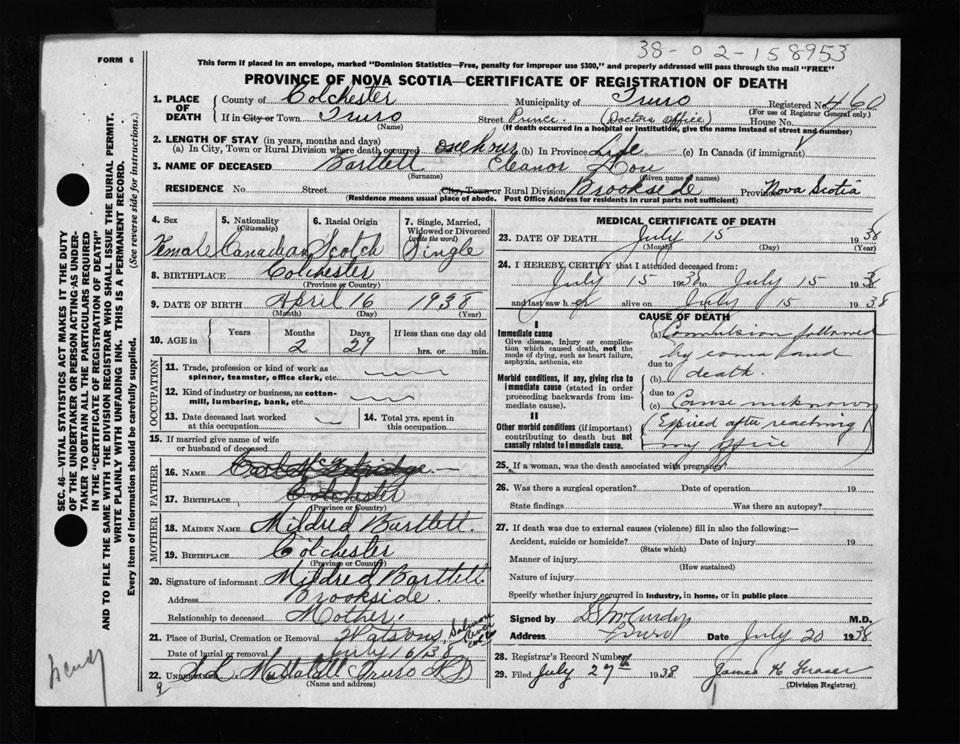 38-02-158953
FORM 6
This form if placed in an envelope, marked "Dominion Statistics—Free, penalty for improper use $300," and properly addressed will pass through the mail "FREE"
PROVINCE OF NOVA SCOTIA—CERTIFICATE OF REGISTRATION OF DEATH
1. PLACE OF DEATH
County of Colchester Municipality of Truro Registered No. 460
(For use of Registrar General only)
If in City or Town Truro Street Prince. (Doctors office) House No.
(Name) (If death occurred in a hospital or institution, give the name instead of street and number)
2. LENGTH OF STAY (in years, months and days)
(a) In City, Town or Rural Division where death occurred one hour (b) In Province Life (c) In Canada (if immigrant)
3. NAME OF DECEASED Bartlett Eleanor Lou
(Surname) (Given name or names)
RESIDENCE No. Street City, Town or Rural Division Brookside Province Nova Scotia
(Residence means usual place of abode. Post Office Address for residents in rural parts not sufficient)
4. Sex
Female
5. Nationality
(Citizenship)
Canadian
6. Racial Origin
Scotch
7. Single, Married, Widowed or Divorced
(write the word)
Single
8. BIRTHPLACE Colchester
(Province or Country)
9. DATE OF BIRTH April 16 1938
(Month) (Day) (Year)
10. AGE in
Years Months Days If less than one day old
2 29 hrs. or min.
OCCUPATION
11. Trade, profession or kind of work as
spinner, teamster, office clerk, etc.
12. Kind of industry or business, as cotton-
mill, lumbering, bank, etc.
13. Date deceased last worked
at this occupation
14. Total yrs. spent in
this occupation
15. If married give name of wife
or husband of deceased
FATHER
16. NAME
17. BIRTHPLACE Colchester
(Province or Country)
MOTHER
18. MAIDEN NAME Mildred Bartlett.
19. BIRTHPLACE Colchester
(Province or Country)
20. Signature of informant Mildred Bartlett.
Address Brookside.
Relationship to deceased Mother.
21. Place of Burial, Cremation or Removal Watsons, Salmon River
Date of burial or removal July 16/38
22. UNDERTAKER Mattatall Truro
(Name and address)
MEDICAL CERTIFICATE OF DEATH
23. DATE OF DEATH July 15 1938
(Month) (Day) (Year)
24. I HEREBY CERTIFY that I attended deceased from:
July 15 1938 to July 15 1938
and last saw h er alive on July 15 1938
CAUSE OF DEATH
I
Immediate cause
Give disease, injury or complication which caused death, not the mode of dying, such as heart failure, asphyxia, asthenia, etc
Morbid conditions, if any, giving rise to immediate cause (stated in order proceeding backwards from immediate cause).
II
Other morbid conditions (if important) contributing to death but not causally related to immediate cause.
(a) Convulsion followed
by coma and
due to
(b) death.
due to
(c) Cause unknown
Expired after reaching
my office
25. If a woman, was the death associated with pregnancy?
26. Was there a surgical operation? Date of operation 19
State findings Was there an autopsy?
27. If death was due to external causes (violence) fill in also the following:—
Accident, suicide or homicide? Date of injury 19
(State which)
Manner of injury
(How sustained)
Nature of injury
Specify whether injury occurred in industry, in home, or in public place
Signed by McCurdy M.D.
Address Truro Date July 20 1938
28. Registrar's Record Number
29. Filed July 27th 1938 James H Fraser
(Division Registrar)
SEC. 46—VITAL STATISTICS ACT MAKES IT THE DUTY
OF THE UNDERTAKER OR PERSON ACTING AS UNDER-
TAKER TO OBTAIN ALL THE PARTICULARS REQUIRED
IN THE "CERTIFICATE OF REGISTRATION OF DEATH"
AND TO FILE THE SAME WITH THE DIVISION REGISTRAR WHO SHALL ISSUE THE BURIAL PERMIT.
WRITE PLAINLY WITH UNFADING INK. THIS IS A PERMANENT RECORD.
Every item of information should be carefully supplied. (See reverse side for instructions.)